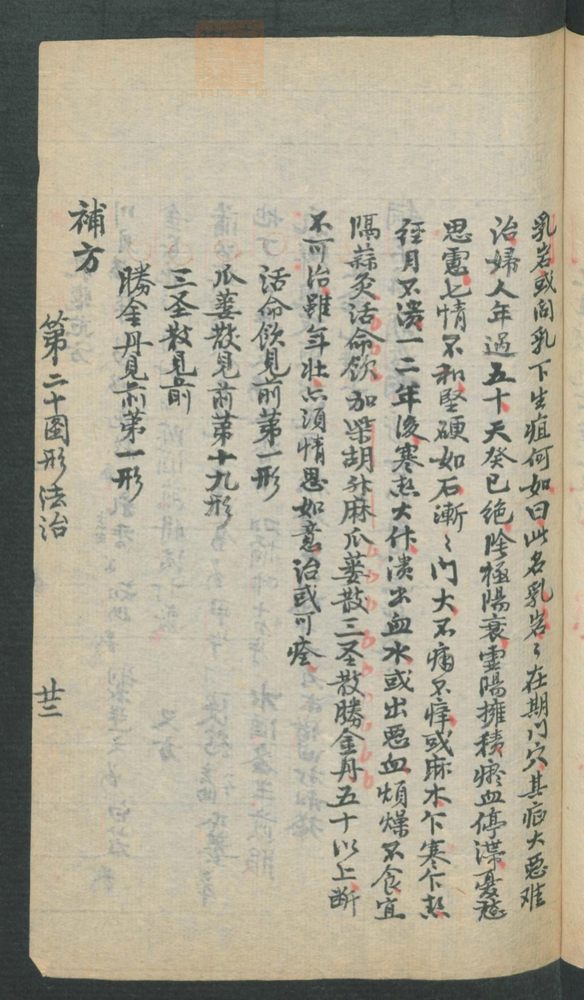 乳岩或问乳下生疽何如曰此名乳岩〻在期门穴其疮大恶难
治婦人年過五十天癸已絶陰極陽衰虚陽擁積瘀血停滞憂愁
思慮七情不和堅硬如石漸〻门大不痛不痒或麻木乍寒乍熱
經月不潰一二年後寒熱大作潰出血水或出恶血煩燥不食宜
隔蒜灸活命飲加柴胡升麻瓜蒌散三圣散勝金丹五十以上断
不可治雖年壮亦須情思如意治或可痊
活命飲見前第一形
瓜蒌散見前第十九形
三圣散見前
勝金丹見前第一形
補方
第二十圖形法治
廿二